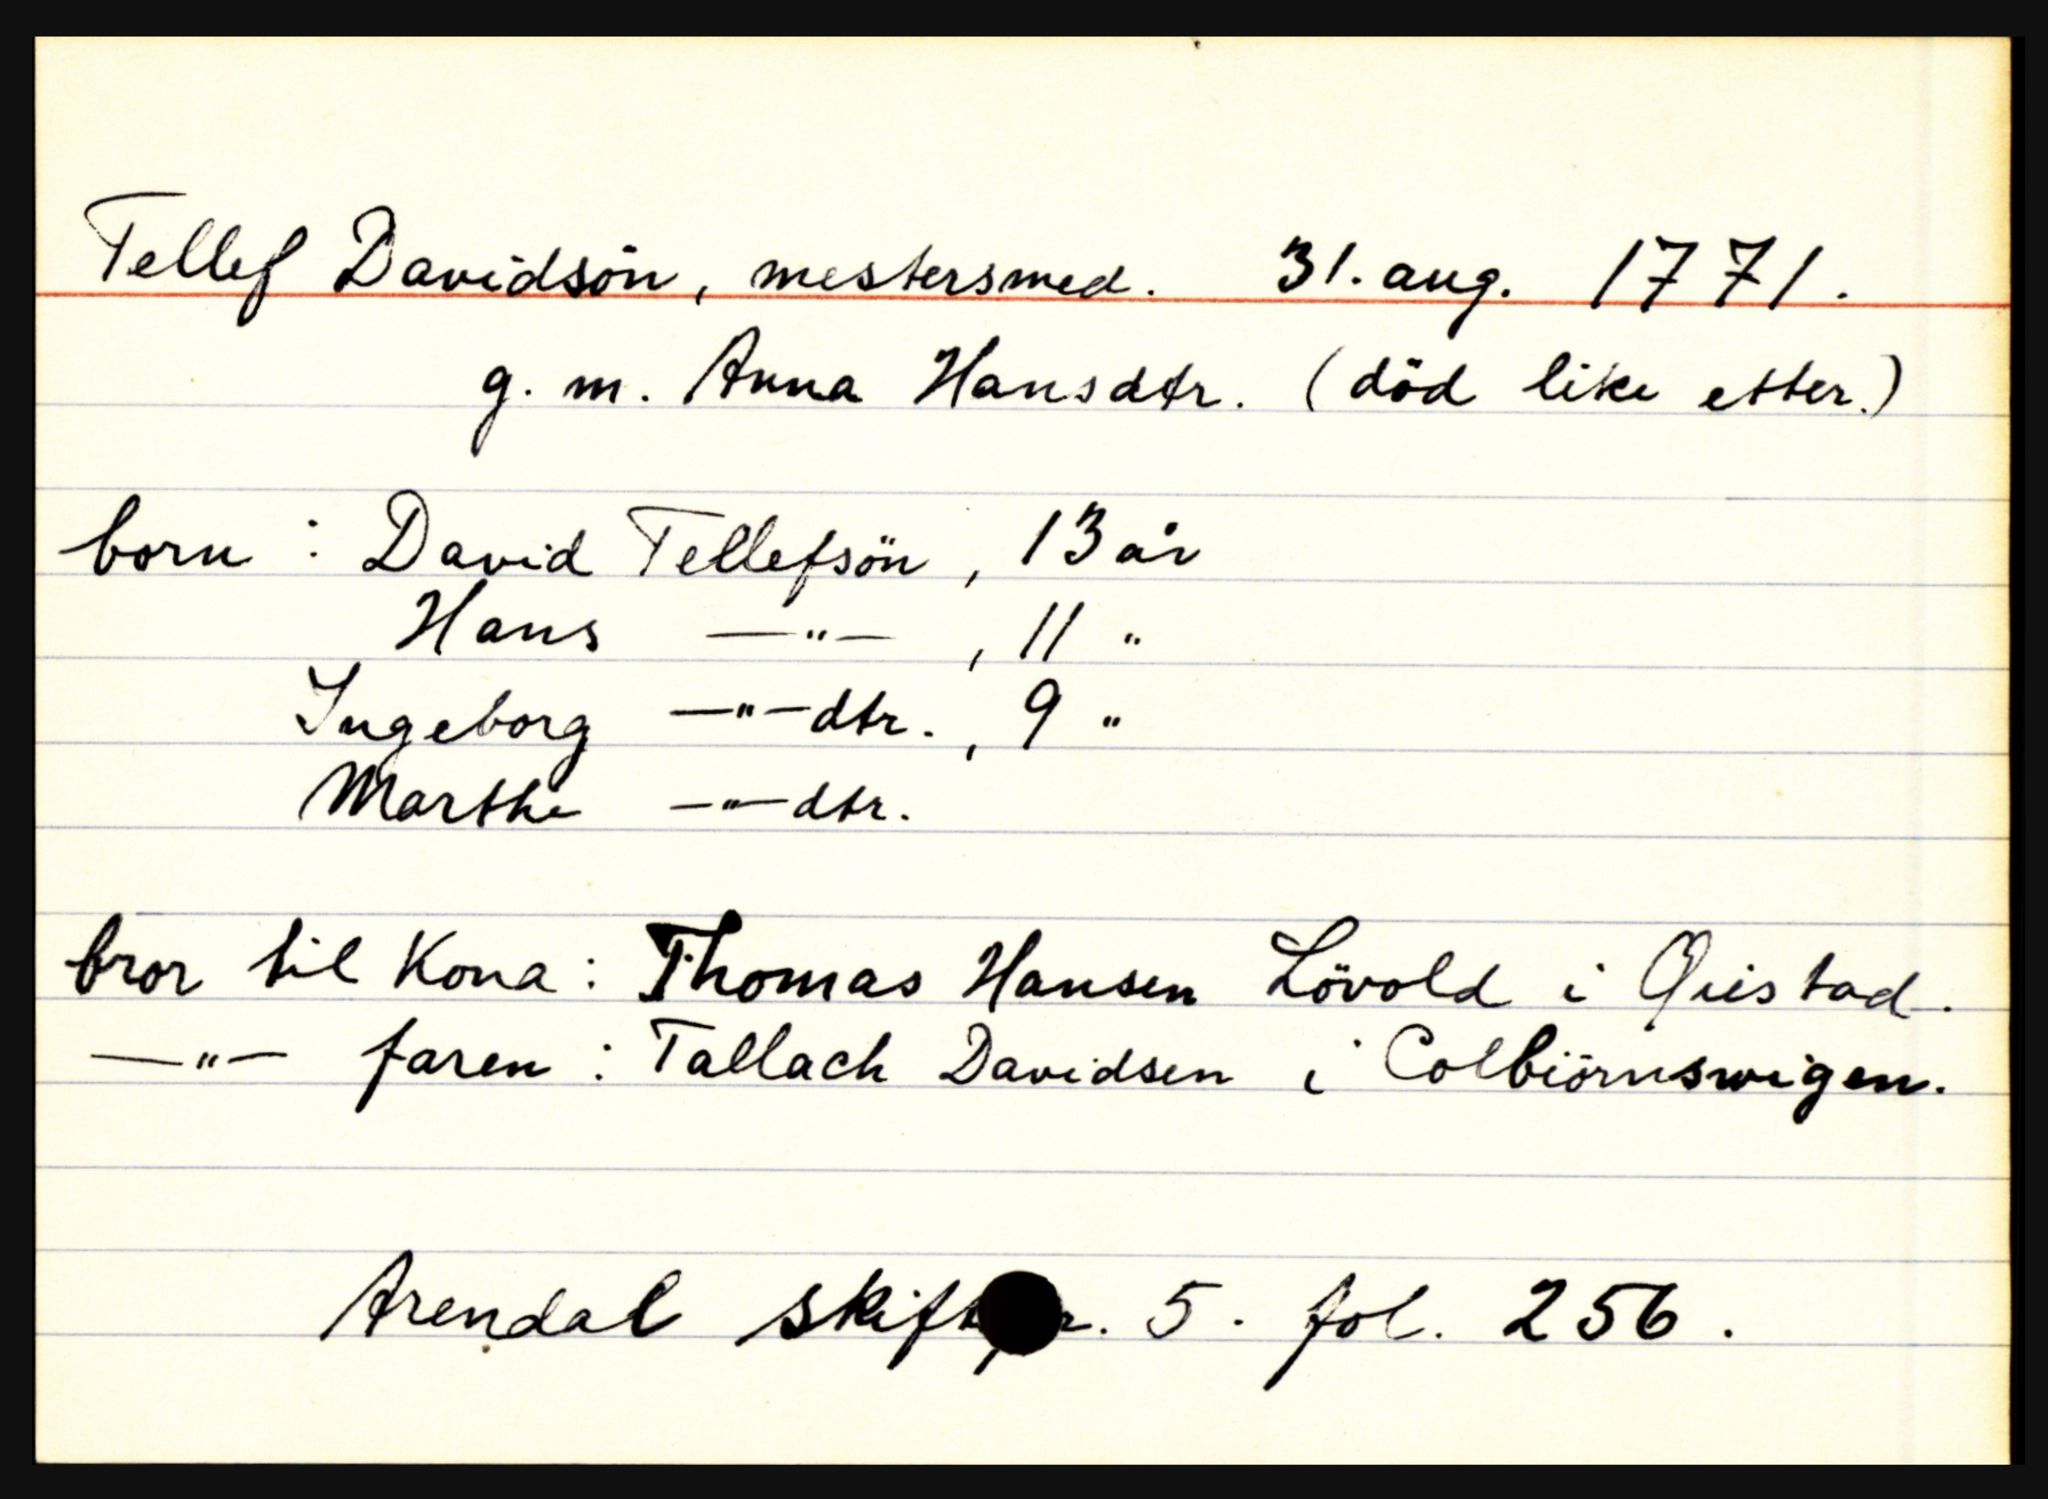 Tellef Davidsön, mestersmed. 31. aug. 1771.
g. m. Anna Hansdtr. (död like etter.)
born : David Tellefsön, 13 år
Hans —"— , 11 "
Ingeborg —"—dtr. , 9 "
Marthe —"—dtr.
bror til Kona : Thomas Hansen Lövold i Qvistad.
—"— faren : Tallach Davidsen i Colbiörnswigen.
Arendal 5. fol. 256.